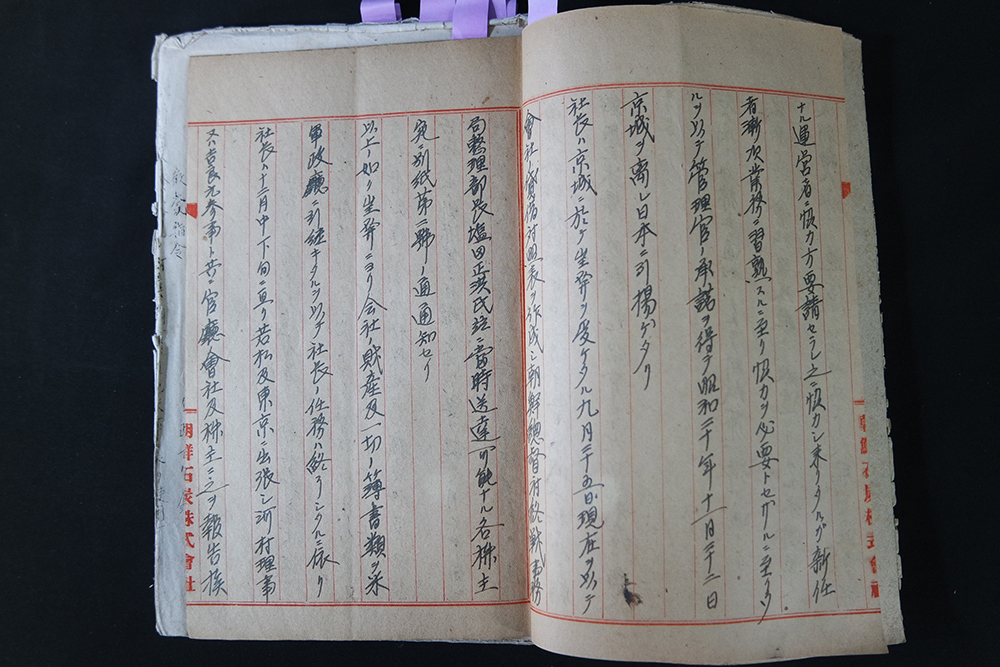 ナル運営者ニ協力方要請セラレ之ニ協力シ来リタルガ新任
者漸次業務ニ習熟スルニ至リ協力ヲ必要トセザルニ至リタ
ルヲ以テ管理官ノ承諾ヲ得テ昭和二十年十一月二十二日
京城ヲ離レ日本ニ引揚ゲタリ
社長ハ京城ニ於テ坐弉ヲ受ケタル九月二十五日現在ヲ以テ
會社ノ貸借対照表ヲ作成シ朝鮮總督府終戦事務
局整理部長塩田正洪氏竝ニ當時送達可能ナル各株主
宛ニ別紙第二號ノ通通知セリ
以上ノ如ク坐弉ニヨリ会社ノ財産及一切ノ簿書類ヲ米
軍政廳ニ引継キタルヲ以テ社長ノ任務ハ終了シタルニ依リ
社長ハ十二月中下旬ニ亘リ若松及東京ニ出張シ河村理事
又ハ吉良元参事ト共ニ官廳會社及株主ニ之ヲ報告挨
朝鮮石炭株式會社